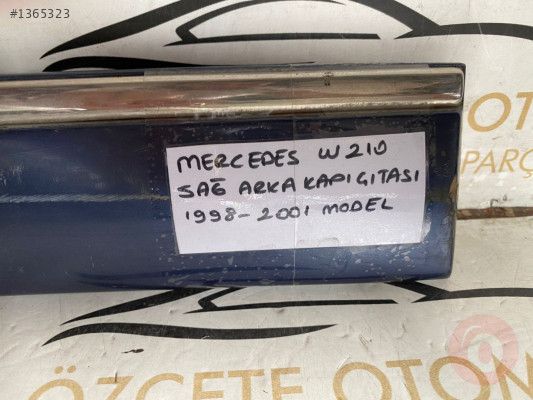 #1365323
OTO
PARÇA
MERCEDES W210
SAĞ ARKA KAPI ÇITASI
1998-2001 MODEL
OTO
PARÇA
ÖZÇETE OTOM